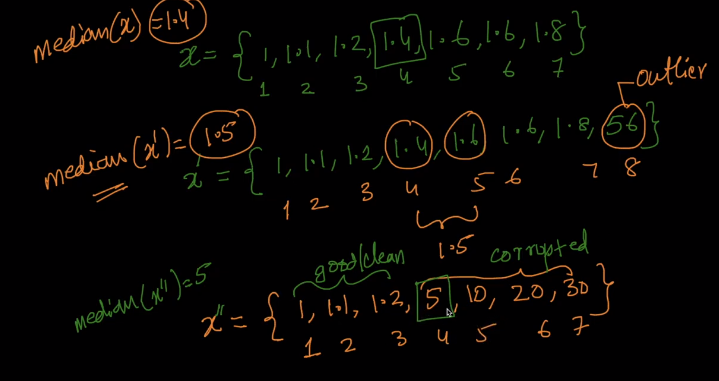 median(x) = 1.4
x = { 1, 1.1, 1.2, 1.4, 1.6, 1.6, 1.8 }
1 2 3 4 5 6 7
outlier
median(x') = 1.5
x' = { 1, 1.1, 1.2, 1.4, 1.6 1.6, 1.8, 56 }
1 2 3 4 5 6 7 8
1.5
good/clean corrupted
median(x'') = 5
x'' = { 1, 1.1, 1.2, 5, 10, 20, 30 }
1 2 3 4 5 6 7